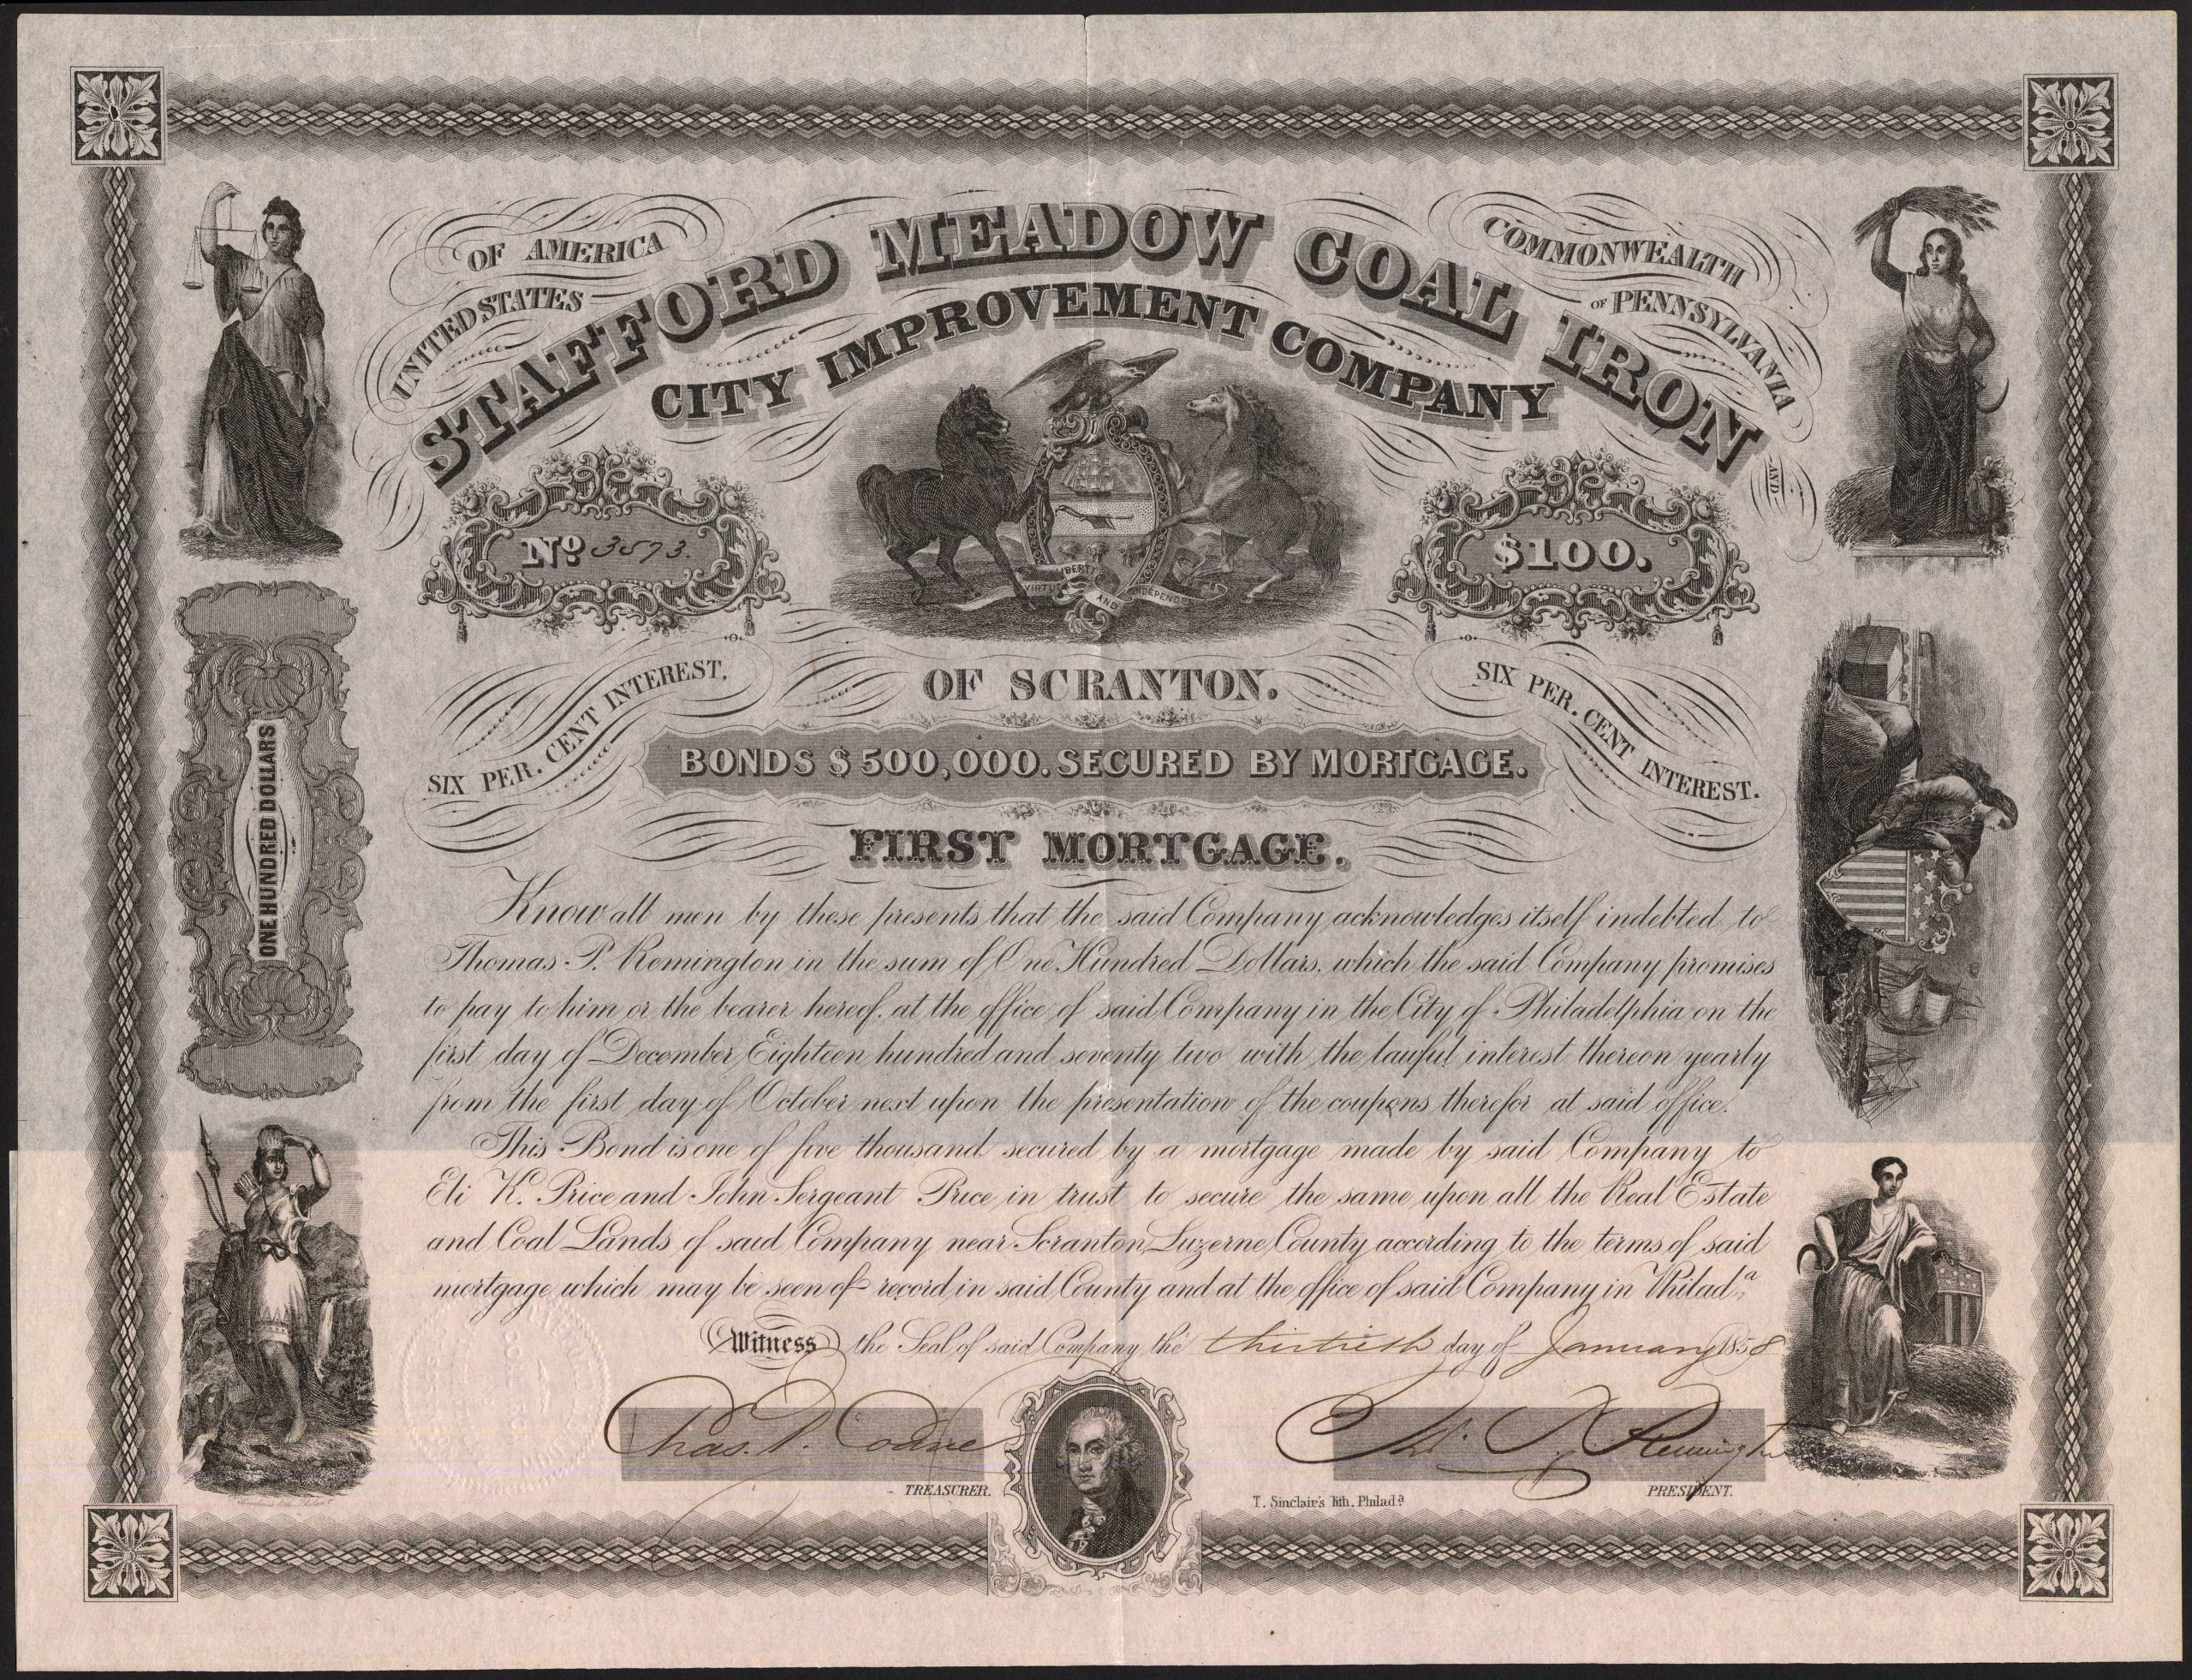 UNITED STATES
OF AMERICA
COMMONWEALTH
OF PENNSYLVANIA
STAFFORD MEADOW COAL IRON
AND
CITY IMPROVEMENT COMPANY
No 3573.
$100.
VIRTUE LIBERTY AND INDEPENDENCE
OF SCRANTON.
SIX PER. CENT INTEREST,
SIX PER. CENT INTEREST.
BONDS $500,000. SECURED BY MORTGAGE.
FIRST MORTGAGE.
ONE HUNDRED DOLLARS
Know all men by these presents that the said Company acknowledges itself indebted to
Thomas P. Remington in the sum of One Hundred Dollars, which the said Company promises
to pay to him or the bearer hereof, at the office of said Company in the City of Philadelphia on the
first day of December Eighteen hundred and seventy two with the lawful interest thereon yearly
from the first day of October next upon the presentation of the coupons therefor at said office.
This Bond is one of five thousand secured by a mortgage made by said Company to
Eli K. Price and John Sergeant Price in trust to secure the same upon all the Real Estate
and Coal Lands of said Company near Scranton, Luzerne County according to the terms of said
mortgage which may be seen of record in said County and at the office of said Company in Philada.
Witness the Seal of said Company the thirtieth day of January 1858
TREASURER.
PRESIDENT.
T. Sinclair's lith. Philada.